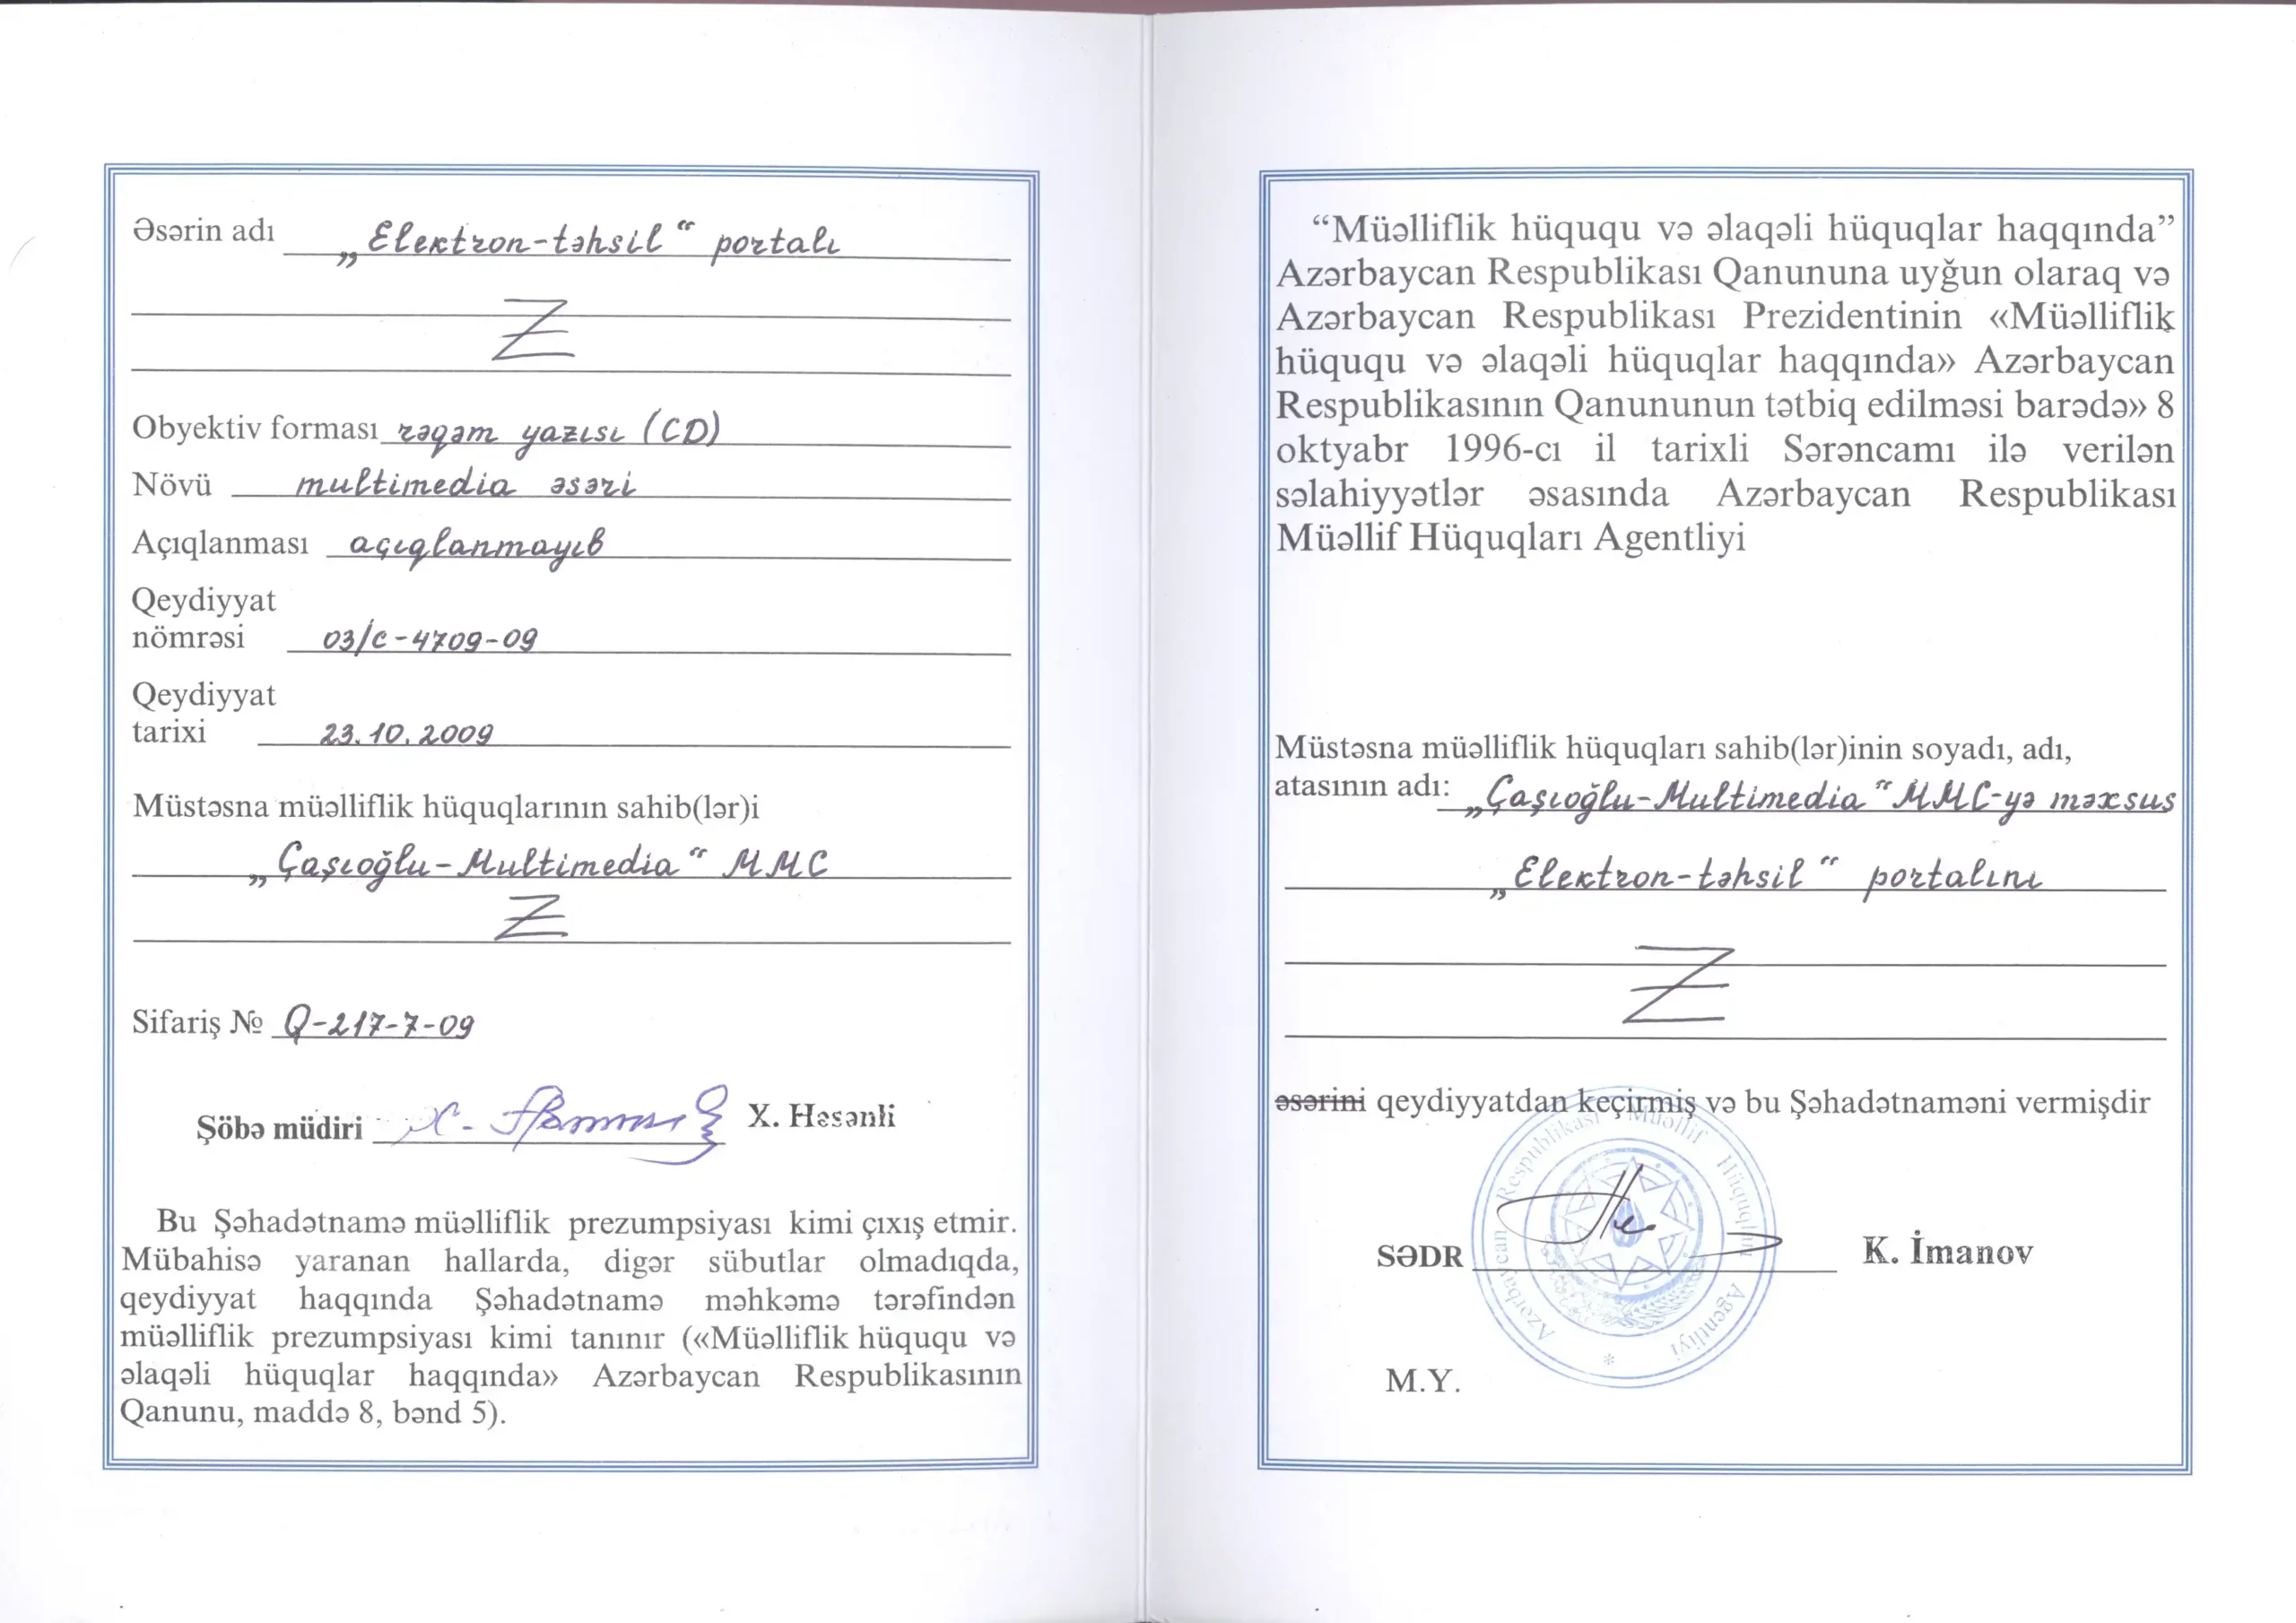 Əsərin adı „Elektron-təhsil“ portalı
Z
Obyektiv forması rəqəm yazısı (CD)
Növü multimedia əsəri
Açıqlanması açıqlanmayıb
Qeydiyyat
nömrəsi 03/C-4709-09
Qeydiyyat
tarixi 23.10.2009
Müstəsna müəlliflik hüquqlarının sahib(lər)i
„Çaşıoğlu-Multimedia“ MMC
Z
Sifariş № Q-217-7-09
Şöbə müdiri X. Həsənli
Bu Şəhadətnamə müəlliflik prezumpsiyası kimi çıxış etmir.
Mübahisə yaranan hallarda, digər sübutlar olmadıqda,
qeydiyyat haqqında Şəhadətnamə məhkəmə tərəfindən
müəlliflik prezumpsiyası kimi tanınır («Müəlliflik hüququ və
əlaqəli hüquqlar haqqında» Azərbaycan Respublikasının
Qanunu, maddə 8, bənd 5).
“Müəlliflik hüququ və əlaqəli hüquqlar haqqında”
Azərbaycan Respublikası Qanununa uyğun olaraq və
Azərbaycan Respublikası Prezidentinin «Müəlliflik
hüququ və əlaqəli hüquqlar haqqında» Azərbaycan
Respublikasının Qanununun tətbiq edilməsi barədə» 8
oktyabr 1996-cı il tarixli Sərəncamı ilə verilən
səlahiyyətlər əsasında Azərbaycan Respublikası
Müəllif Hüquqları Agentliyi
Müstəsna müəlliflik hüquqları sahib(lər)inin soyadı, adı,
atasının adı: „Çaşıoğlu-Multimedia“ MMC-yə məxsus
„Elektron-təhsil“ portalını
Z
əsərini qeydiyyatdan keçirmiş və bu Şəhadətnaməni vermişdir
Azərbaycan Respublikası Müəllif Hüquqları Agentliyi *
SƏDR K. İmanov
M.Y.